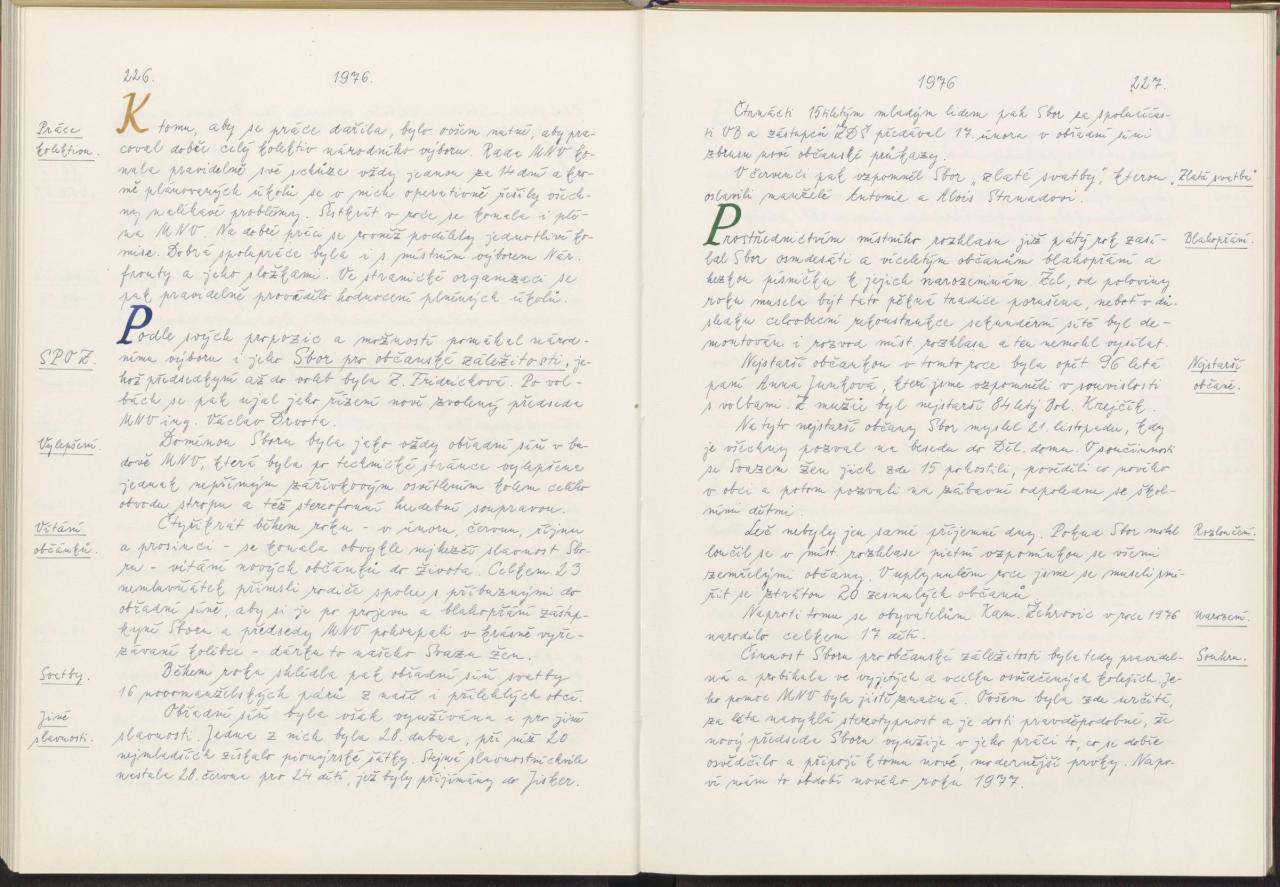 226.
1976.
Práce
kolektion.
K tomu, aby se práce dařila, bylo ovšem nutné, aby pra-
coval dobře celý kolektiv národního výboru. Rada MNV ko-
nala pravidelně své schůze vždy jednou za 14 dní a kro-
mě plánovaných úkolů se v nich operativně řešily všech-
ny naléhavé problémy. Šestkrát v roce se konala i plé-
na MNV. Na dobré práci se rovněž podílely jednotlivé ko-
mise. Dobrá spolupráce byla i s místním výborem Nár.
fronty a jeho složkami. Ve stranické organizaci se
pak pravidelně provádělo hodnocení plněných úkolů.
SPOZ.
Podle svých propozic a možností pomáhal národ-
nímu výboru i jeho Sbor pro občanské záležitosti, je-
hož předsedkyní až do voleb byla Z. Fridrichová. Po vol-
bách se pak ujal jeho řízení nově zvolený předseda
MNV ing. Václav Drvota.
Vylepšení.
Doménou Sboru byla jako vždy obřadní síň v bu-
dově MNV, která byla po technické stránce vylepšena
jednak nepřímým zářivkovým osvětlením kolem celého
obvodu stropu a též stereofonní hudební soupravou.
Vítání
občánků.
Čtyřikrát během roku - v únoru, červnu, říjnu
a prosinci - se konala obvykle nejhezčí slavnost Sbo-
ru - vítání nových občánků do života. Celkem 23
nemluvňátek přinesli rodiče spolu s příbuznými do
obřadní síně, aby si je po projevu a blahopřání zástup-
kyně Sboru a předsedy MNV pohoupali v krásně vyře-
závané kolébce - dárku to našeho Svazu žen.
Svatby.
Během roku shlédla pak obřadní síň svatby
16 novomanželských párů z naší i přilehlých obcí.
Jiné
slavnosti.
Obřadní síň byla však využívána i pro jiné
slavnosti. Jedna z nich byla 28. dubna, při níž 20
nejmladších získalo pionýrské šátky. Stejně slavnostní chvíle
nastala 28. června pro 24 dětí, jež byly přijímány do Jisker.
1976
227.
Čtrnácti 15tiletým mladým lidem pak Sbor za spoluúčas-
ti VB a zástupců ZDŠ předával 17. února v obřadní síni
zbrusu nové občanské průkazy.
V červenci pak vzpomněl Sbor "zlaté svatby", kterou
"Zlatá svatba"
oslavili manželé Antonie a Alois Strnadovi.
Prostřednictvím místního rozhlasu již pátý rok zasí-
Blahopřání.
lal Sbor osmdesáti a víceletým občanům blahopřání a
hezkou písničku k jejich narozeninám. Žel, od poloviny
roku musela být tato pěkná tradice porušena, neboť v dů-
sledku celoobecní rekonstrukce sekundérní sítě byl de-
montován i rozvod míst. rozhlasu a ten nemohl vysílat.
Nejstarší občankou v tomto roce byla opět 96 letá
Nejstarší
občané.
paní Anna Junková, kteri jsme vzpomněli v souvislosti
s volbami. Z mužů byl nejstarší 84letý Boh. Krejčík.
Na tyto nejstarší občany Sbor myslel 21. listopadu, kdy
je všechny pozval na besedu do Děl. domu. V součinnosti
se Svazem žen jich zde 15 pohostili, pověděli co nového
v obci a potom pozvali na zábavné odpoledne se škol-
ními dětmi.
Leč nebyly jen samé příjemné dny. Pokud Sbor mohl
Rozloučení.
loučil se v míst. rozhlase pietní vzpomínkou se všemi
zemřelými občany. V uplynulém roce jsme se museli smí-
řit se ztrátou 20 zesnulých občanů.
Naproti tomu se obyvatelům Kam. Žehrovic v roce 1976
Narození.
narodilo celkem 17 dětí.
Činnost Sboru pro občanské záležitosti byla tedy pravidel-
Souhrn.
ná a probíhala ve vyjetých a vcelku osvědčených kolejích. Je-
ho pomoc MNV byla jistě značná. Ovšem byla zde určitá,
za léta navyklá stereotypnost a je dosti pravděpodobné, že
nový předseda Sboru využije v jeho práci to, co se dobře
osvědčilo a připojí k tomu nové, modernější prvky. Napo-
ví nám to období nového roku 1977.